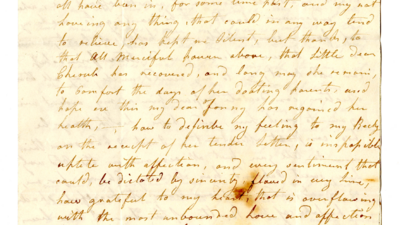 all have been in, for some time past, and my not
having any thing, that could in any way tend
to relieve, has kept us silent, but thanks, to
that All Merciful power above, that little dear
has recovered, and long may she remain,
to comfort the days of her doating parents, and
hope ere this my dear has regained her
health, how to describe my feeling to my
on the receipt of her tender letter, is impossible
replete with affection, and every sentiment that
could, be dictated by sincerity flowed in every line,
how grateful to my heart, that is overflowing
with the most unbounded love and affection